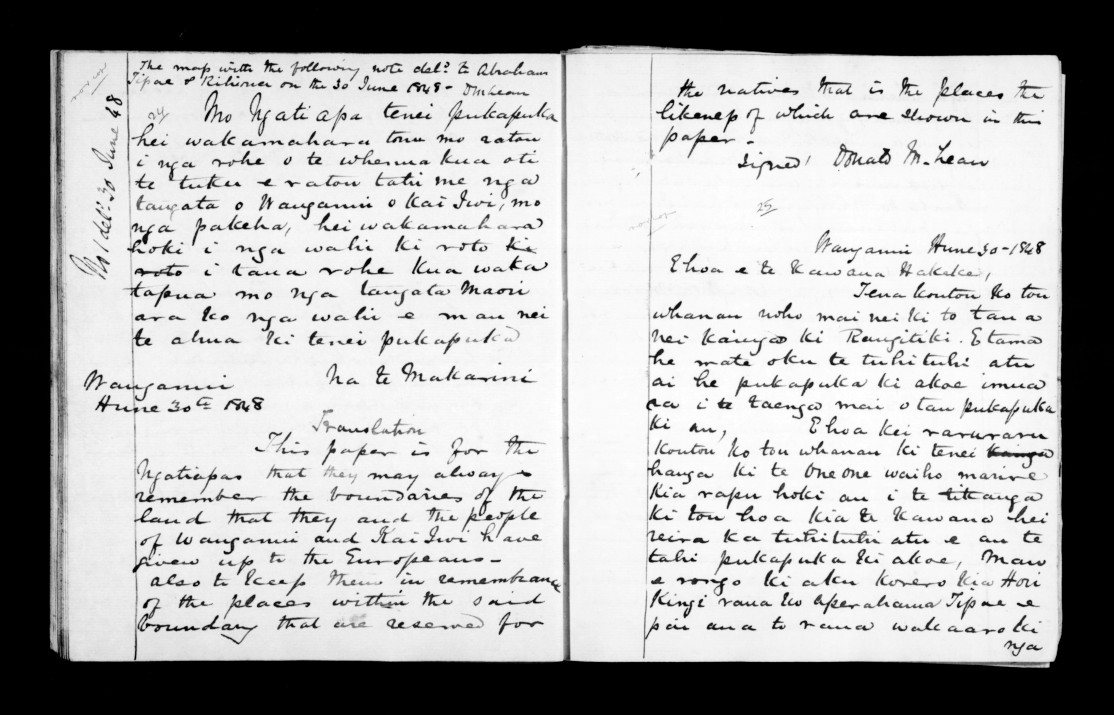 The map with the following note deld. to Abraham
Tipae & Kihiona on the 30 June 1848 - DMcLean
No 1 deld. 30 June 48
24
Mo Ngatiapa tenei pukapuka
hei wakamahara tonu mo ratou
i nga rohe o te whenua kua oti
te tuku e ratou tahi me nga
tangata o Wanganui o Kai Iwi, mo
nga pakeha, hei wakamahara
hoki i nga wahi ki roto ki
roto i taua rohe kua waka
tapua mo nga tangata Maori
ara ko nga wahi e mau nei
te ahua ki tenei pukapuka
Na te Makarini
Wanganui
Hune 30th 1848
Translation
This paper is for the
Ngatiapas that they may always
remember the boundaries of the
land that they and the people
of Wanganui and Kai Iwi have
given up to the Europeans -
also to keep them in remembrance
of the places within the said
boundary that are reserved for
the natives that is the places the
likeness of which are shown in this
paper -
Signed/ Donald McLean
25
Wanganui Hune 30 - 1848
Ehoa e te Kawana Hakeke,
Tena koutou ko tou
whanau noho mai nei ki to taua
nei kainga ki Rangitiki. Etama
he mate oku te tuhituhi atu
ai he pukapuka ki akoe imua
ra i te taenga mai o tau pukapuka
ki au, Ehoa kei raruraru
koutou ko tou whanau ki tenei kainga
hanga ki te Oneone waiho marire
kia rapu hoki au i te tikanga
ki tou hoa kia te Kawana hei
reira ka tuhituhi atu e au te
tahi pukapuka ki akoe, Mau
e rongo ki aku korero kia Hori
Kingi raua ko Aperahama Tipae e
pai ana to raua wakaaro ki
nga